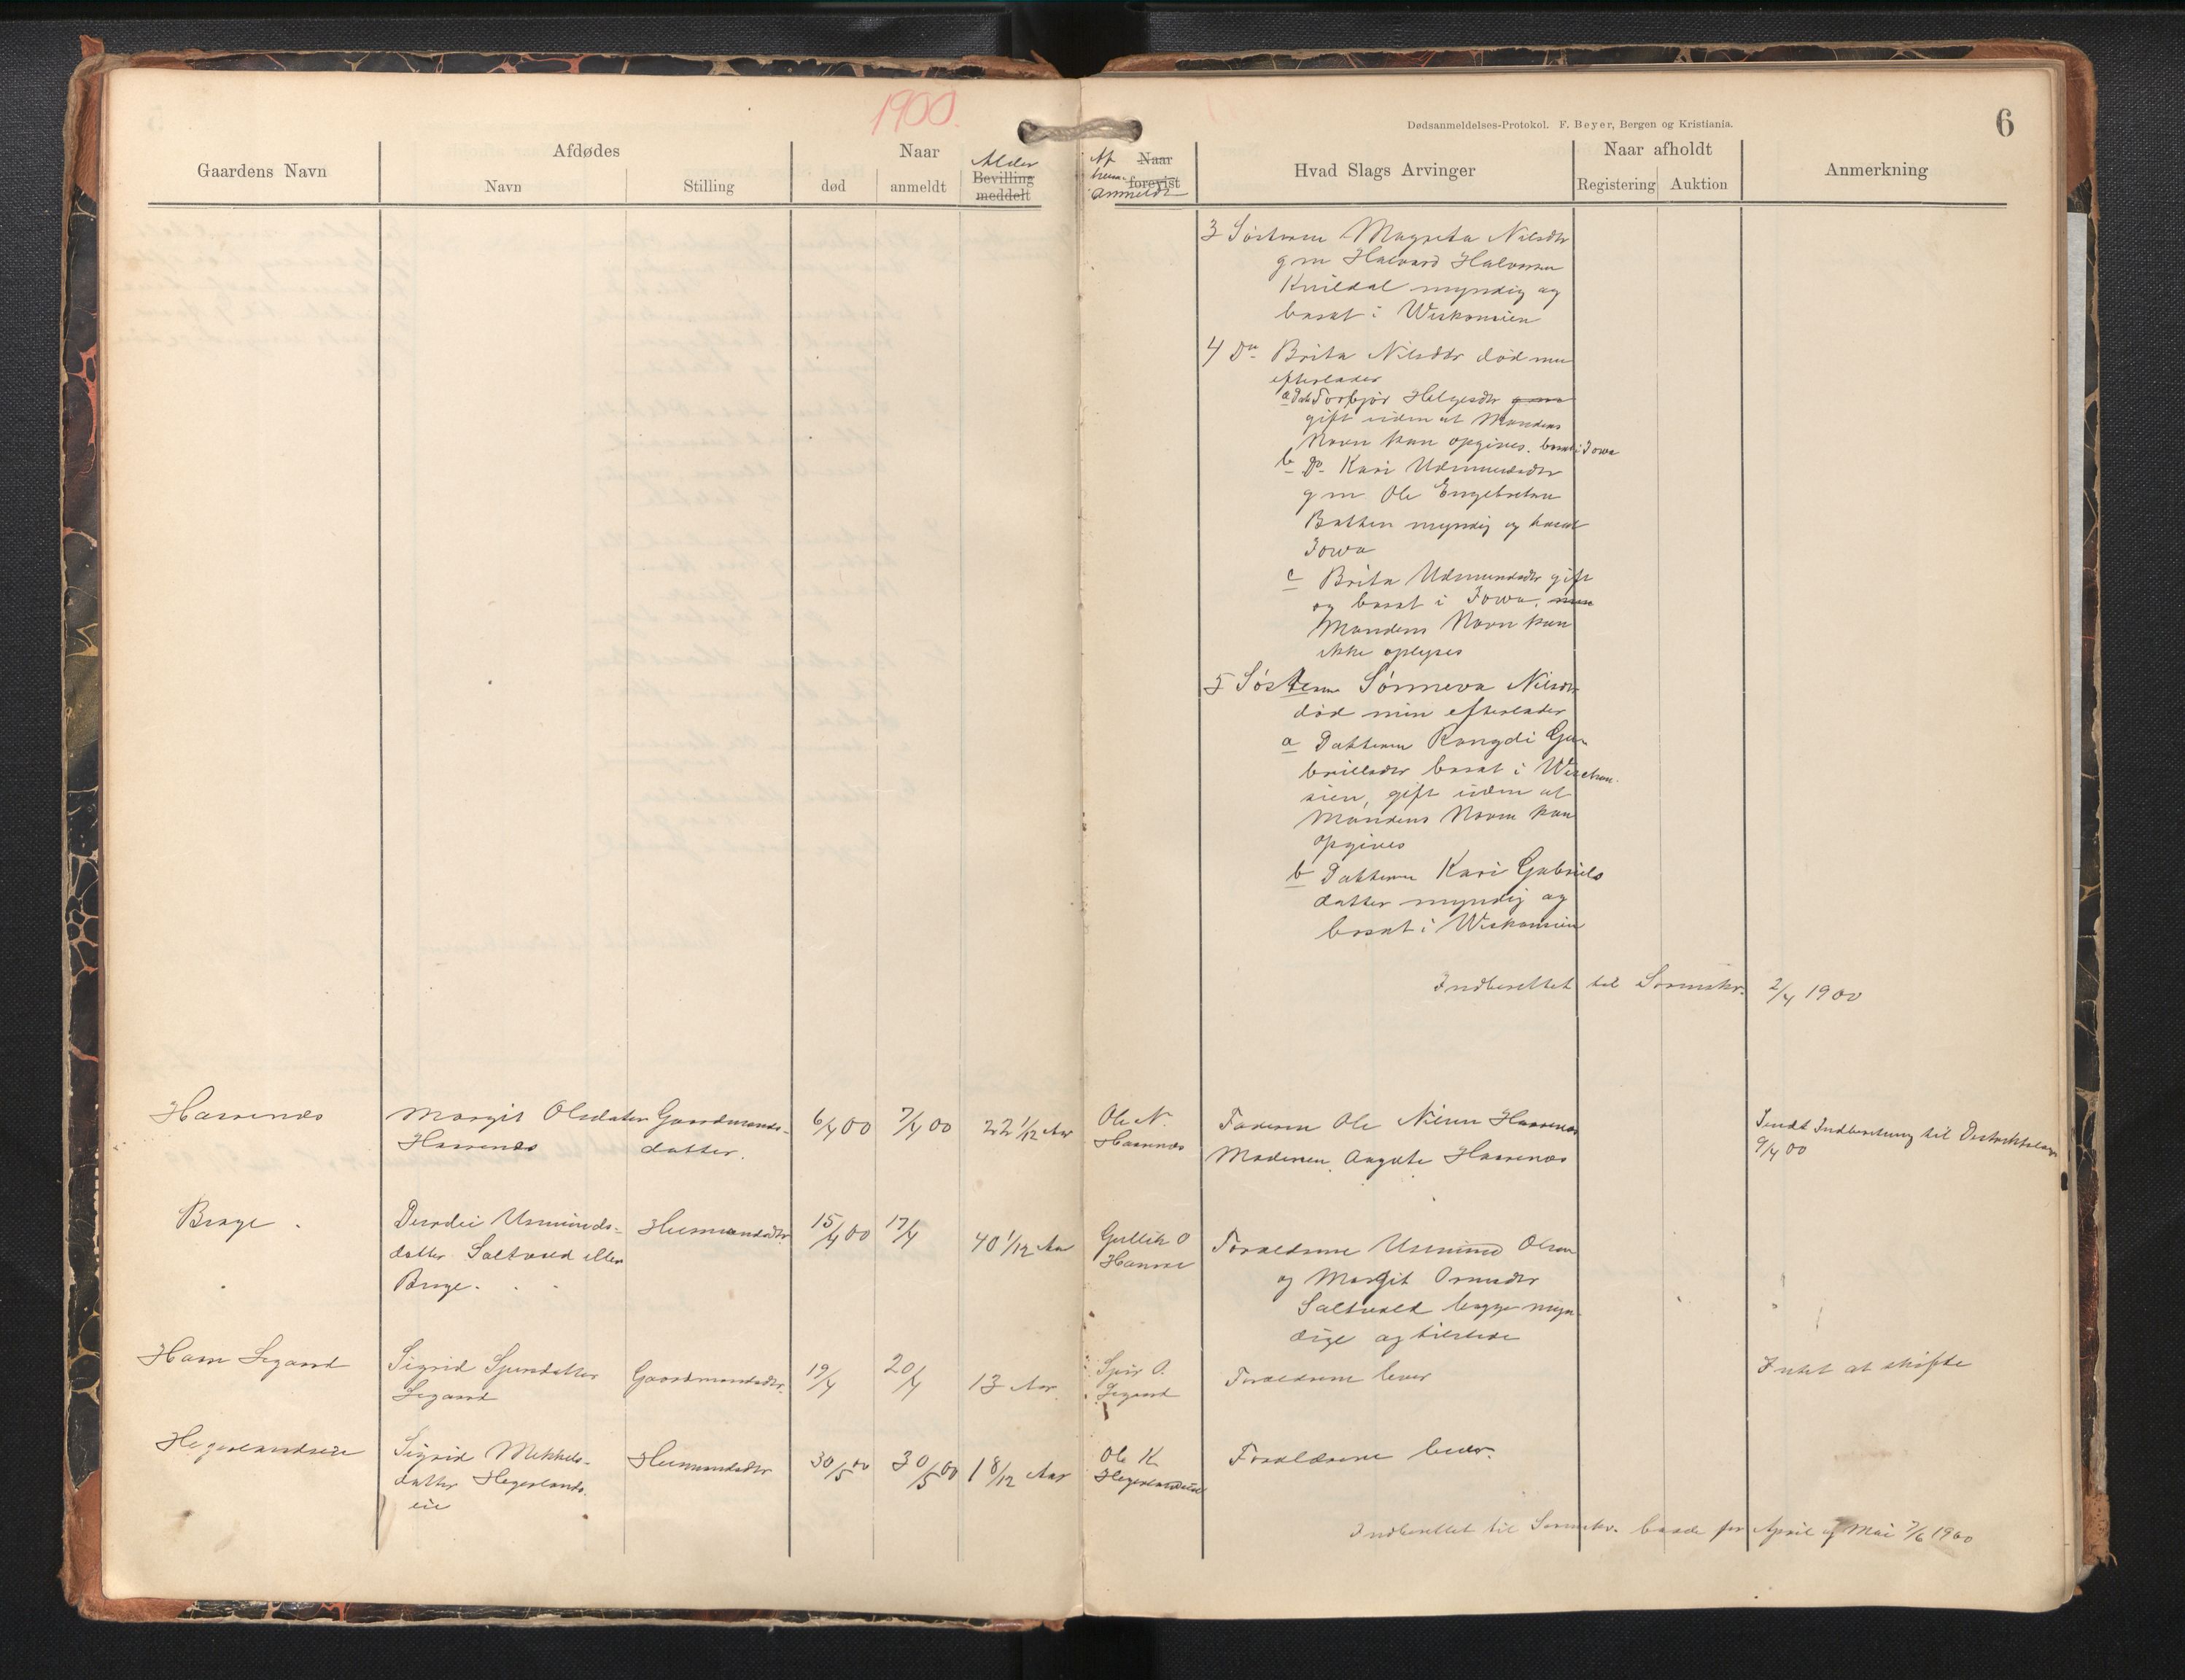 1900.
Dødsanmeldelses-Protokol. F. Beyer, Bergen og Kristiania.
6
Gaardens Navn
Afdødes
Navn
Stilling
Naar
død
anmeldt
Alder
Bevilling
meddelt
Af
hvem
anmeldt
Naar
forevist
Hvad Slags Arvinger
Naar afholdt
Registering
Auktion
Anmerkning
3 Søsteren Magreta Nilsdtr
gm Halvard Halvorsen
Kvildal myndig og
bosat i Wiskonsien
4 Do Brita Nilsdtr død men
efterlader
a Dat Torbjør Helgesdtr gm
gift uden at Mandens
Navn kan opgives. bosat i Iowa
b Do Kari Udmundsdtr
gm Ole Engebretsen
Bakken myndig og bosat
Iowa
c Brita Udmundsdtr gift
og bosat i Iowa, men
Mandens Navn kan
ikke oplyses
5 Søsteren Sønneva Nilsdtr
død men efterlader
a Datteren Rangdi Ga-
brillsdtr bosat i Wischon-
sien, gift uden at
Mandens Navn kan
opgives
b Datteren Kari Gabriels
datter myndig og
bosat i Wiskonsien
Indberettet til Sorenskr. 2/4 1900
Haarenæs
Margit Olsdatter
Haarenæs
Gaardmands-
datter.
6/4 00
7/4 00
22 1/12 Aar
Ole N.
Haarenæs
Faderen Ole Nilsen Haarenæs
Moderen Aagate Haarenæs
Sendt Indberetning til Distriktslæge
9/4 00
Brage.
Durdei Usmunds-
datter Saltvold eller
Brage.
Husmandsdtr
15/4 00
17/4
40 1/12 Aar
Gullik O
Forældrene Usmund Olsen
og Margit Ormsdtr
Saltvold begge myn-
dige og tilstede
Segaard
Sigrid Sjursdatter
Segaard
Gaardmandsdtr.
19/4
20/4
13 Aar
Sjur O.
Segaard
Forældrene lever
Intet at skifte
Hegerlandseie
Sigrid Mikkels-
datter Hegerlands-
eie
Husmandsdtr
30/5 00
30/5 00
1 8/12 Aar
Ole K.
Hegerlandseie
Forældrene lever.
Indberettet til Sorenskr. baade for April og Mai 7/6 1900